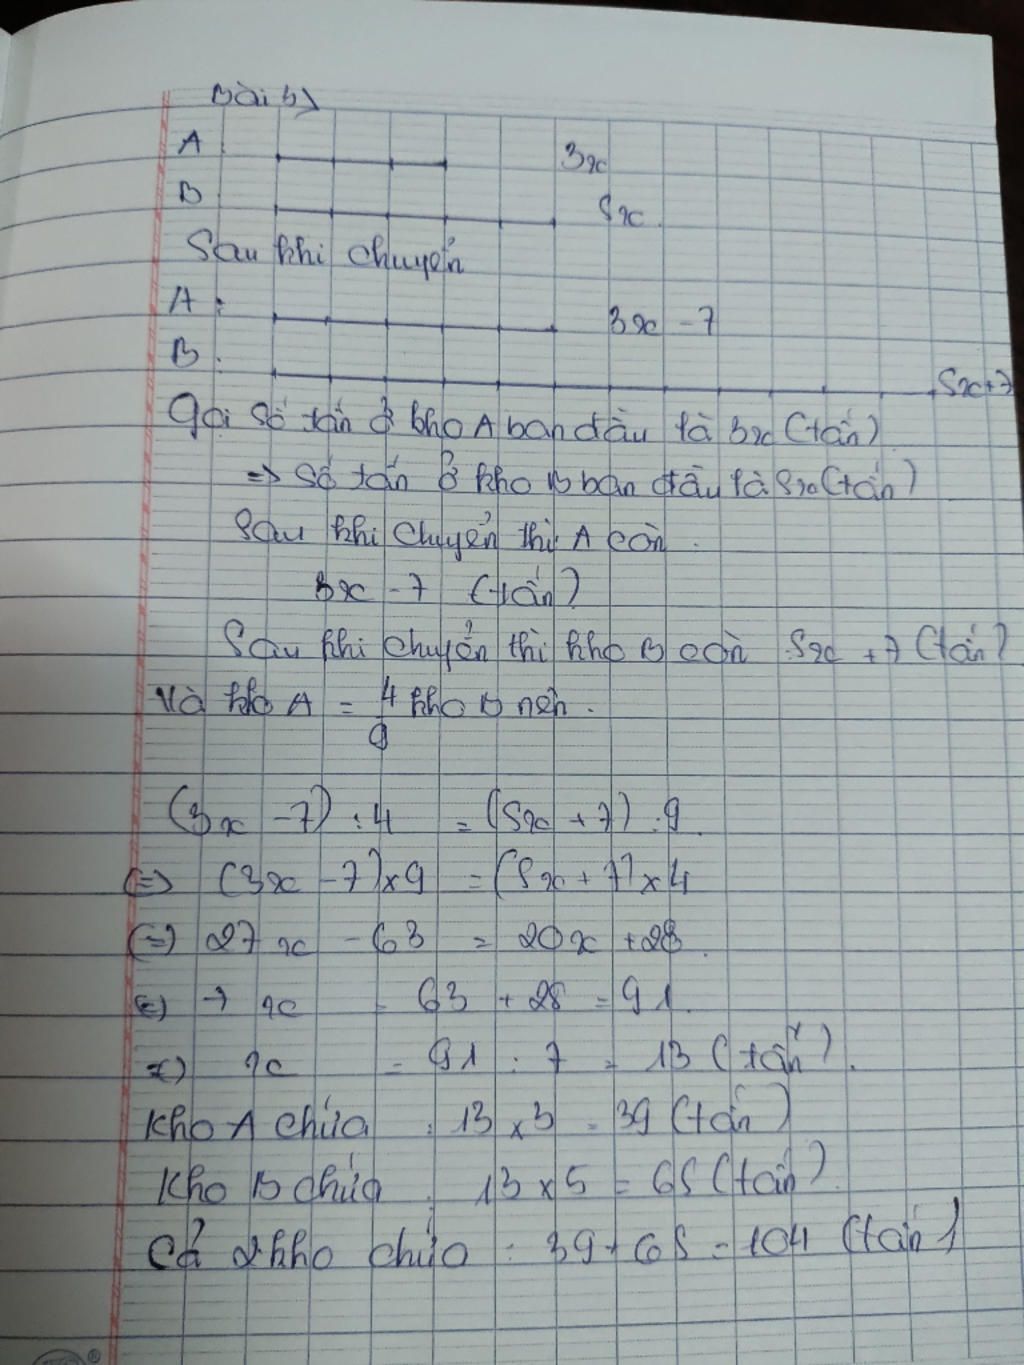 Bài 5)
A 3x
B 5x
Sau khi chuyển
A : 3x - 7
B : 5x+7
Gọi số tấn ở kho A ban đầu là 3x (tấn)
=> Số tấn ở kho B ban đầu là 5x (tấn)
Sau khi chuyển thì A còn
3x - 7 (tấn)
Sau khi chuyển thì kho B còn 5x + 7 (tấn)
Và kho A = 4/9 kho B nên.
(3x - 7) : 4 = (5x + 7) : 9
(=) (3x - 7) x 9 = (5x + 7) x 4
(=) 27x - 63 = 20x + 28
(=) 7x = 63 + 28 = 91
=) x = 91 : 7 = 13 (tấn).
Kho A chứa : 13 x 3 = 39 (tấn)
Kho B chứa : 13 x 5 = 65 (tấn)
Cả 2 kho chứa : 39 + 65 = 104 (tấn)